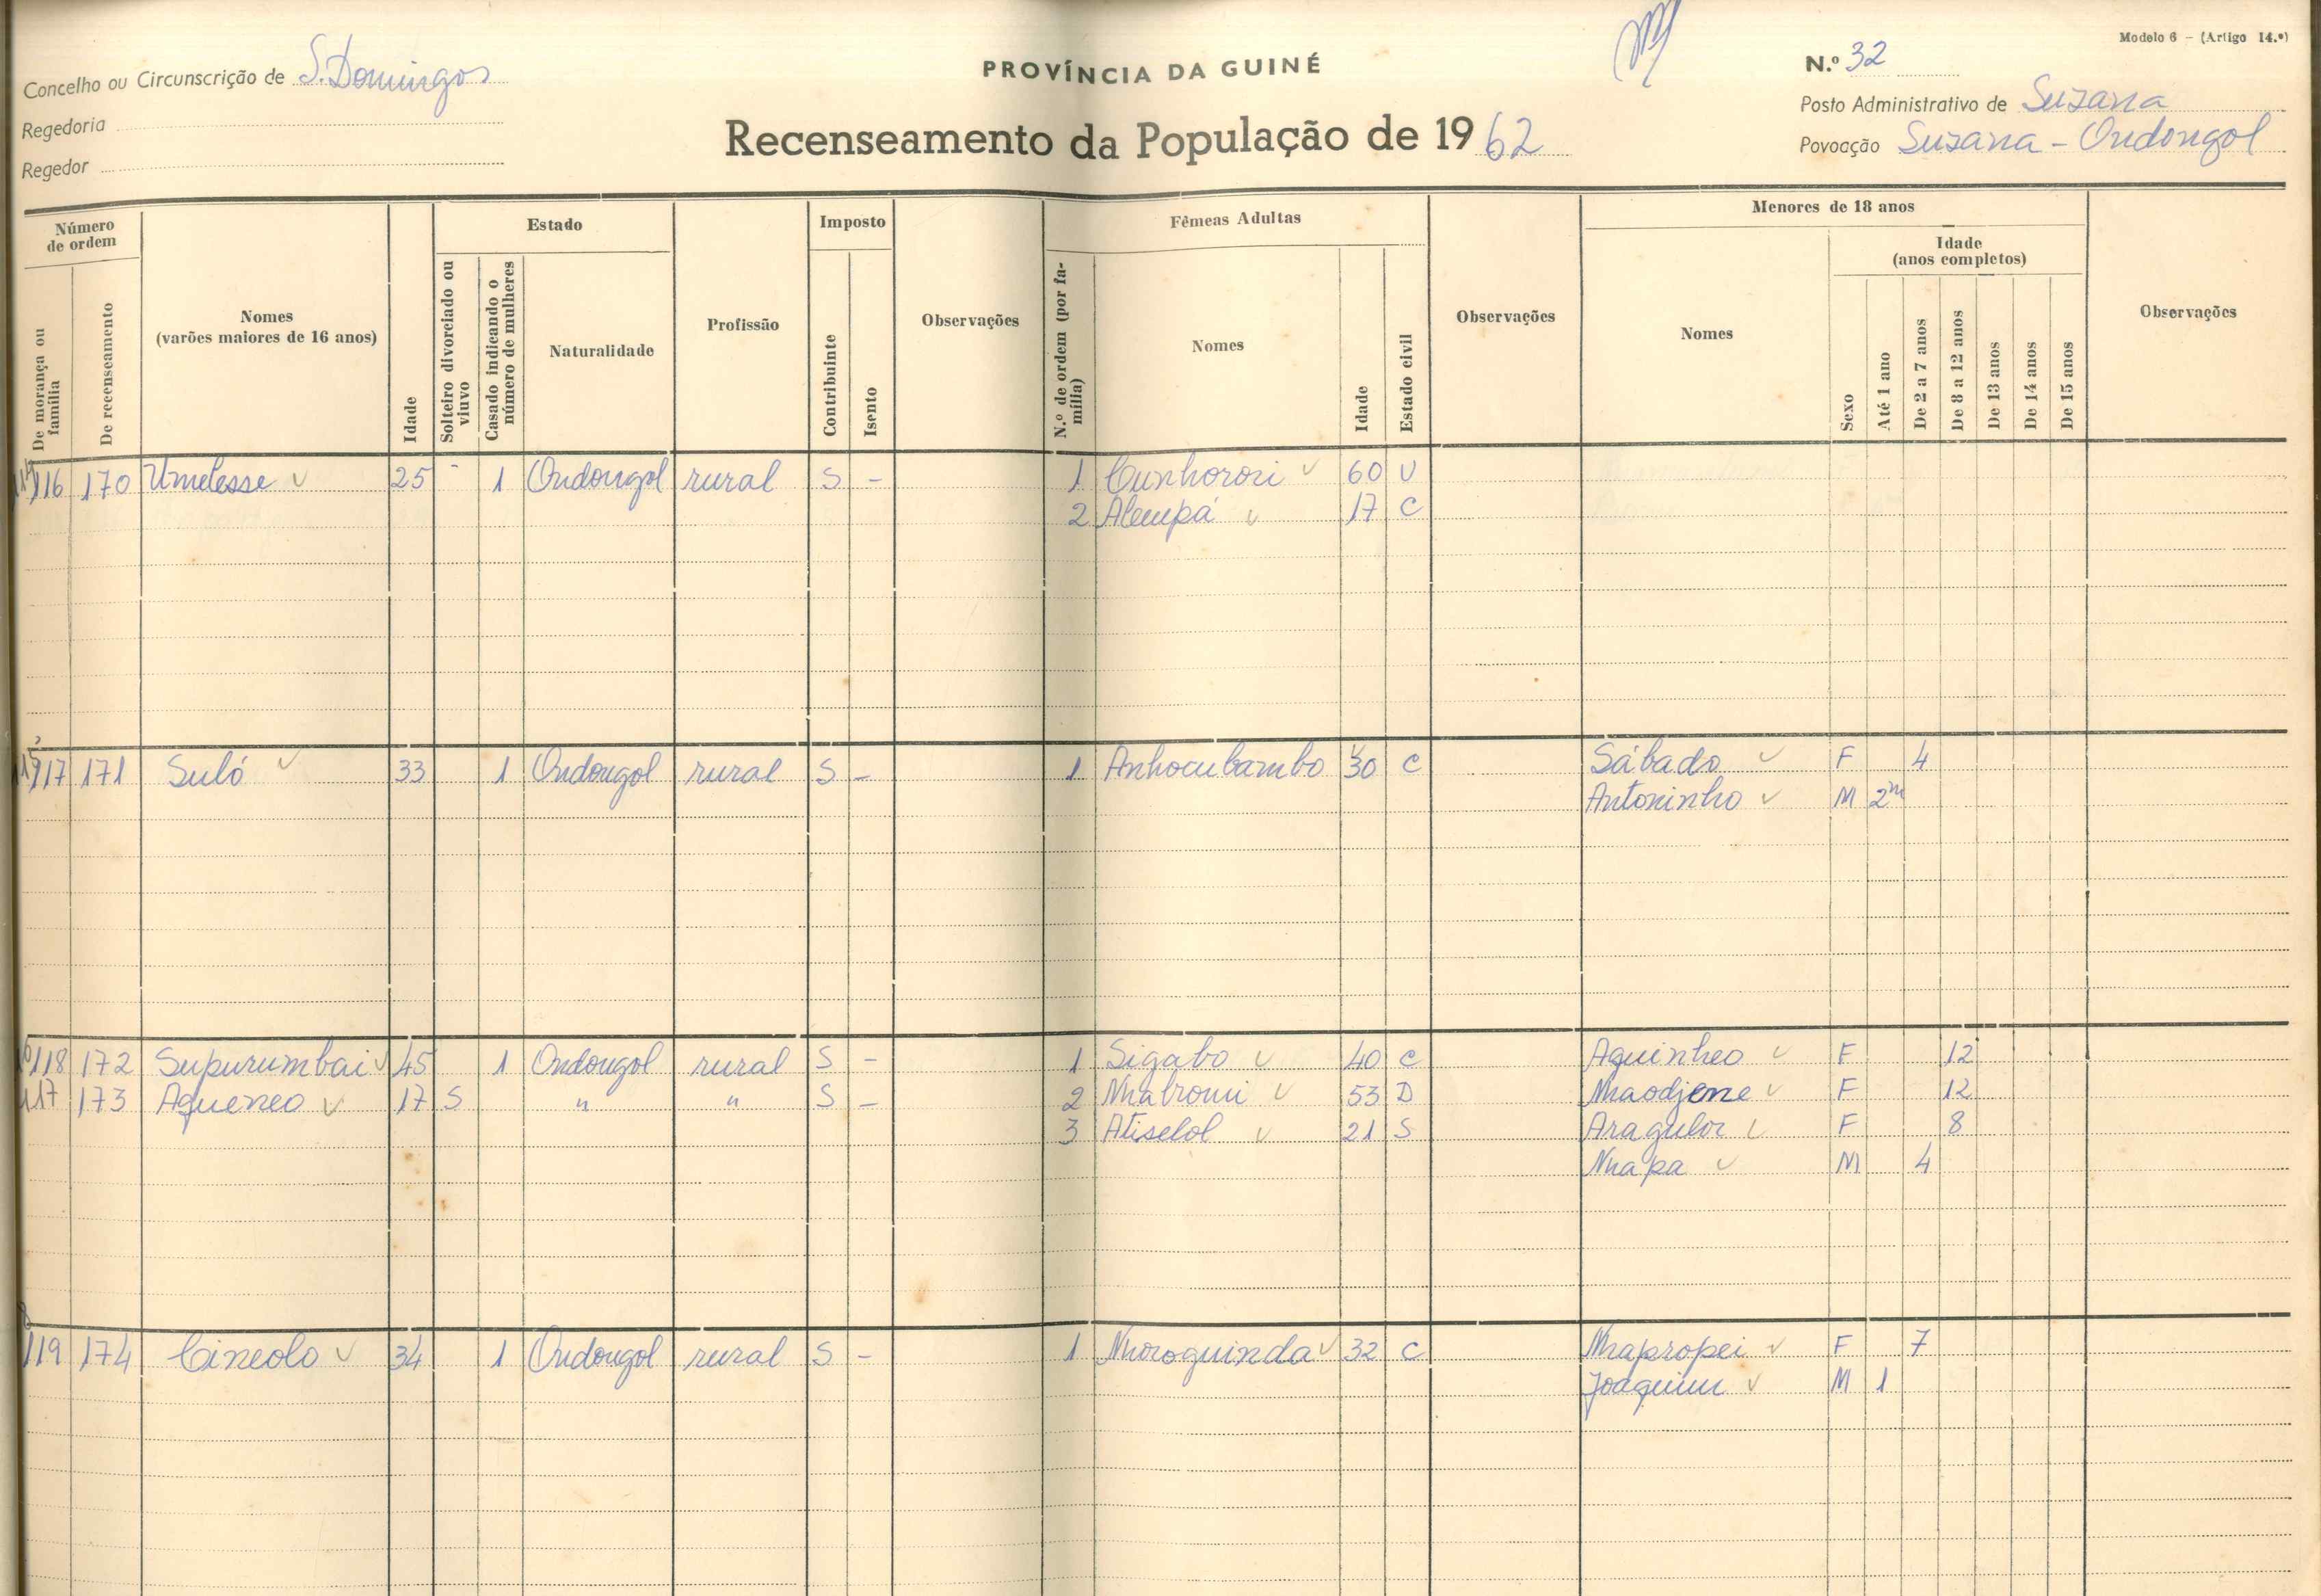 Modelo 6 - (Artigo 14.º)
Concelho ou Circunscrição de S. Domingos
PROVÍNCIA DA GUINÉ
N.º 32
Regedoria
Posto Administrativo de Suzana
Regedor
Recenseamento da População de 1962
Povoação Suzana - Ondongol
Número de ordem
De morança ou família
De recenseamento
Nomes (varões maiores de 16 anos)
Idade
Estado
Solteiro divorciado ou viuvo
Casado indicando o número de mulheres
Naturalidade
Profissão
Imposto
Contribuinte
Isento
Observações
Fêmeas Adultas
N.º de ordem (por família)
Nomes
Idade
Estado civil
Observações
Menores de 18 anos
Nomes
Sexo
Idade (anos completos)
Até 1 ano
De 2 a 7 anos
De 8 a 12 anos
De 13 anos
De 14 anos
De 15 anos
Observações
116 170 Umelesse 25 - 1 Ondongol rural S - 1 Cunhorori 60 V
2 Alempá 17 C
117 171 Suló 33 1 Ondongol rural S - 1 Anhocubambo 30 C Sábado F 4
Antoninho M 2m
118 172 Supurumbai 45 1 Ondongol rural S - 1 Sigabo 40 C Aquinheo F 12
117 173 Aqueneo 17 S " " S - 2 Nhabromi 53 D Nhaodjene F 12
3 Atiselol 21 S Aragulor F 8
Nhapa M 4
119 174 Cineolo 34 1 Ondongol rural S - 1 Nhoroguinda 32 C Nhapropei F 7
Joaquim M 1